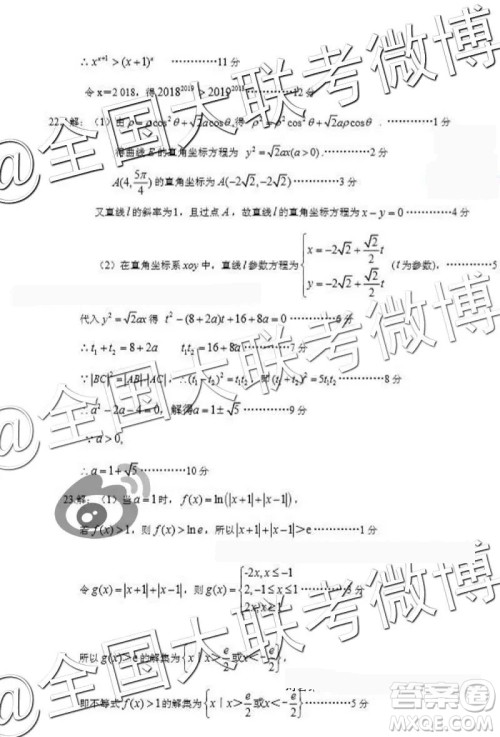 ∴ x^(x+1) > (x+1)^x ············11 分
令 x=2 018，得 2018^2019 > 2019^2018 ············12 分
22. 解：（1）由 ρ=ρcos²θ+√2acosθ,得 ρ²=ρ²cos²θ+√2aρcosθ . ············1 分
得曲线 E 的直角坐标方程为 y²=√2ax(a>0). ············2 分
A(4, 5π/4) 的直角坐标为 A(-2√2,-2√2) ············3 分
又直线 l 的斜率为1，且过点 A，故直线 l 的直角坐标方程为 x-y=0 ············4 分
（2）在直角坐标系 xoy 中，直线 l 参数方程为 { x=-2√2+(√2/2)t
y=-2√2+(√2/2)t (t为参数), ············5
代入 y²=√2ax 得 t²-(8+2a)t+16+8a=0 ············6 分
∴ t₁+t₂=8+2a t₁t₂=16+8a ············7 分
∵ |BC|²=|AB|·|AC|, ∴(t₁-t₂)²=t₁t₂, 即 (t₁+t₂)²=5t₁t₂ ············8 分
∴ a²-2a-4=0, 解得 a=1±√5 ············9 分
∵ a>0,
∴ a=1+√5 ············10 分
23.解：（1）当 a=1 时，f(x)=ln(|x+1|+|x-1|),
若 f(x)>1，则 f(x)>ln e，所以 |x+1|+|x-1|>e ············1 分
令 g(x)=|x+1|+|x-1|，则 g(x)= { -2x, x≤-1
2, -1≤x≤1 ············3 分
2x, x≥1
所以 g(x)>e 的解集为 {x | x>e/2 或 x<-e/2},
即不等式 f(x)>1 的解集为 {x | x>e/2 或 x<-e/2} ············5 分
@全国大联考微博
@全国大联考微博
@全国大联考微博
答案圈
MXQE.COM